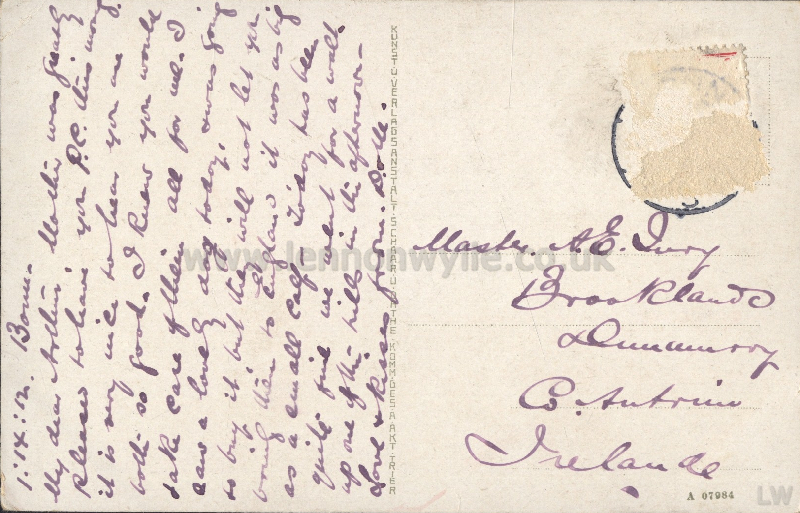 1:14:12. Bonn.
My dear Arthur Mother was greatly
pleased to have yr P.C. this morng.
it is very nice to hear you are
both so good. I knew you would
take care of them all for me. I
saw a lovely dog today, & was going
to buy it but they will not let you
bring them to England it was as big
as a small calf. Today has been
quite fine we went for a walk
up one of the hills in the afternoon
Love & kisses from
KUNST U. VERLAGSANSTALT SCHAAR U. DATHE KOMM. GES. A. AKT. TRIER
Master. A. E. Jury
Brooklands
Dunmurry
Co. Antrim
Ireland
A 07984
www.lennonwylie.co.uk
LW